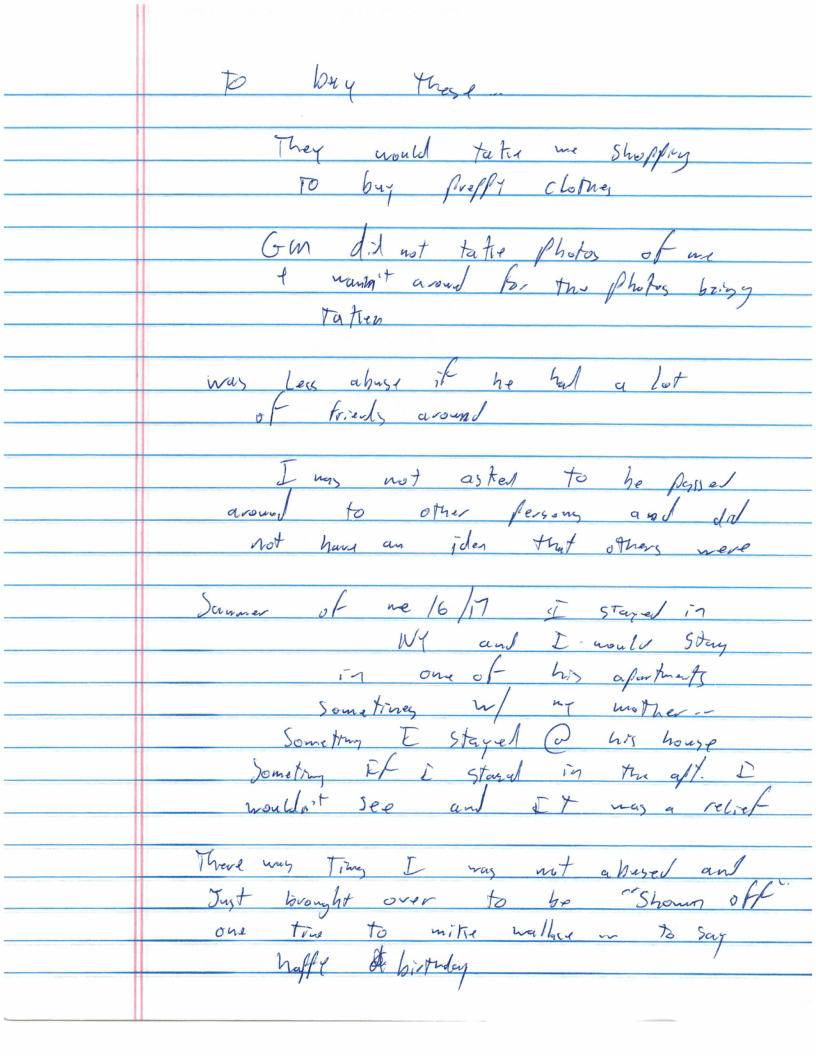 To buy these...
They would take me shopping
TO buy preppy clothes
GM did not take photos of me
+ wasn't around for the photos being
Taken
was Less abuse if he had a lot
of friends around
I was not asked to be passed
around to other persons and did
not have an iden that others were
Summer of me 16/17 I stayed in
NY and I would stay
in one of his apartments
sometimes w/ my mother...
Sometimes I stayed @ his house
Sometimes If i stayed in the apt. I
wouldn't see and IT was a relief
There was Times I was not abused and
Just brought over to be "Shown off"
one time to mike wallace to say
happy birthday